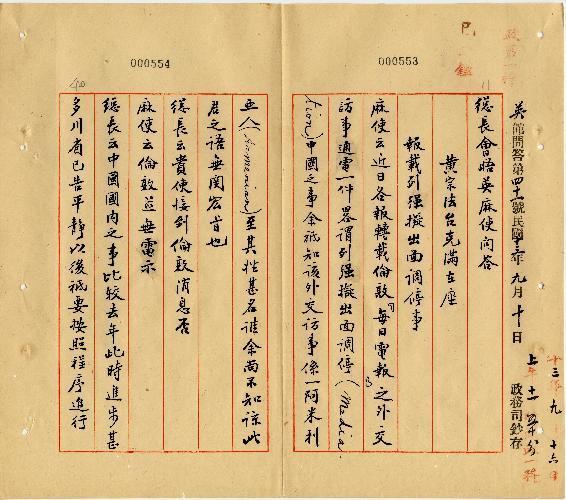 000553
英館問答第四十一號民國十三年九月十日
政務司鈔存
總長會晤英麻使問答
黃宗法台克滿在座
報載列强擬出面調停事
麻使云近日各報轉載倫敦每日電報之外交
訪事通電一件畧謂列强擬出面調停(Media-
tion)中國之事余祇知該外交訪事係一阿米利
000554
亞人(Armenian)至其姓甚名誰余尚不知諒此
君之語無関宏旨也
總長云貴使接到倫敦消息否
麻使云倫敦並無電示
總長云中國國内之事比較去年此時進步甚
多川省已告平静以後祇要按照程序進行